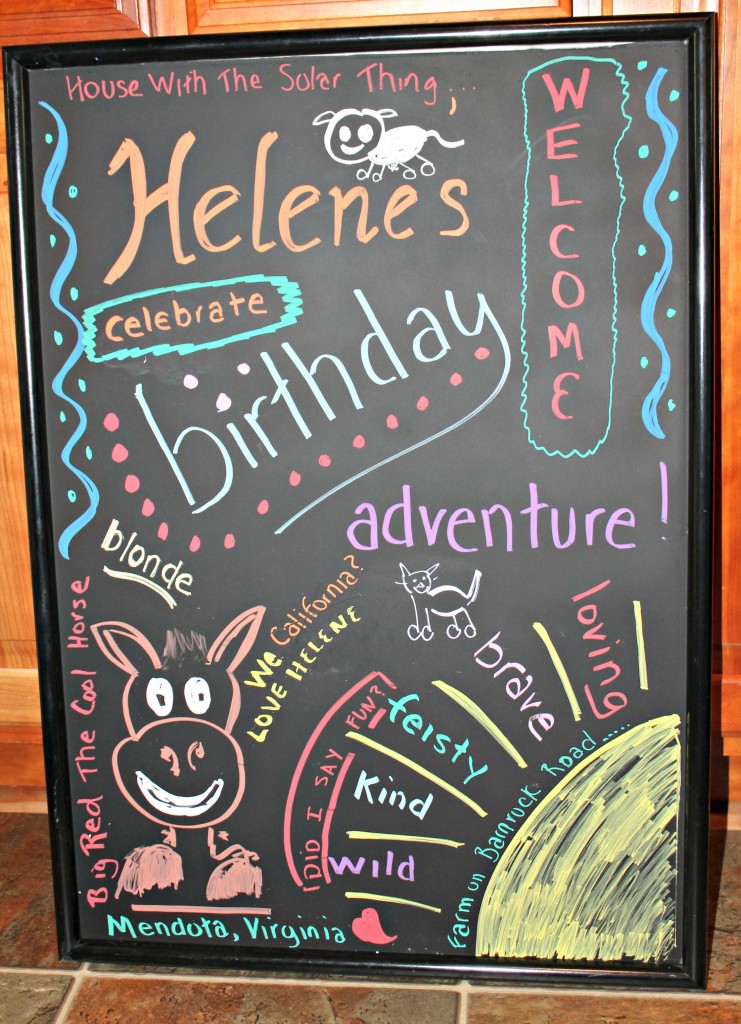 House With The Solar Thing...
WELCOME
Helene's
celebrate
birthday
adventure!
blonde
Big Red The Cool Horse
California?
We
LOVE HELENE
loving
brave
feisty
Kind
wild
DID I SAY FUN?
Farm on Barnrock Road.....
Mendota, Virginia